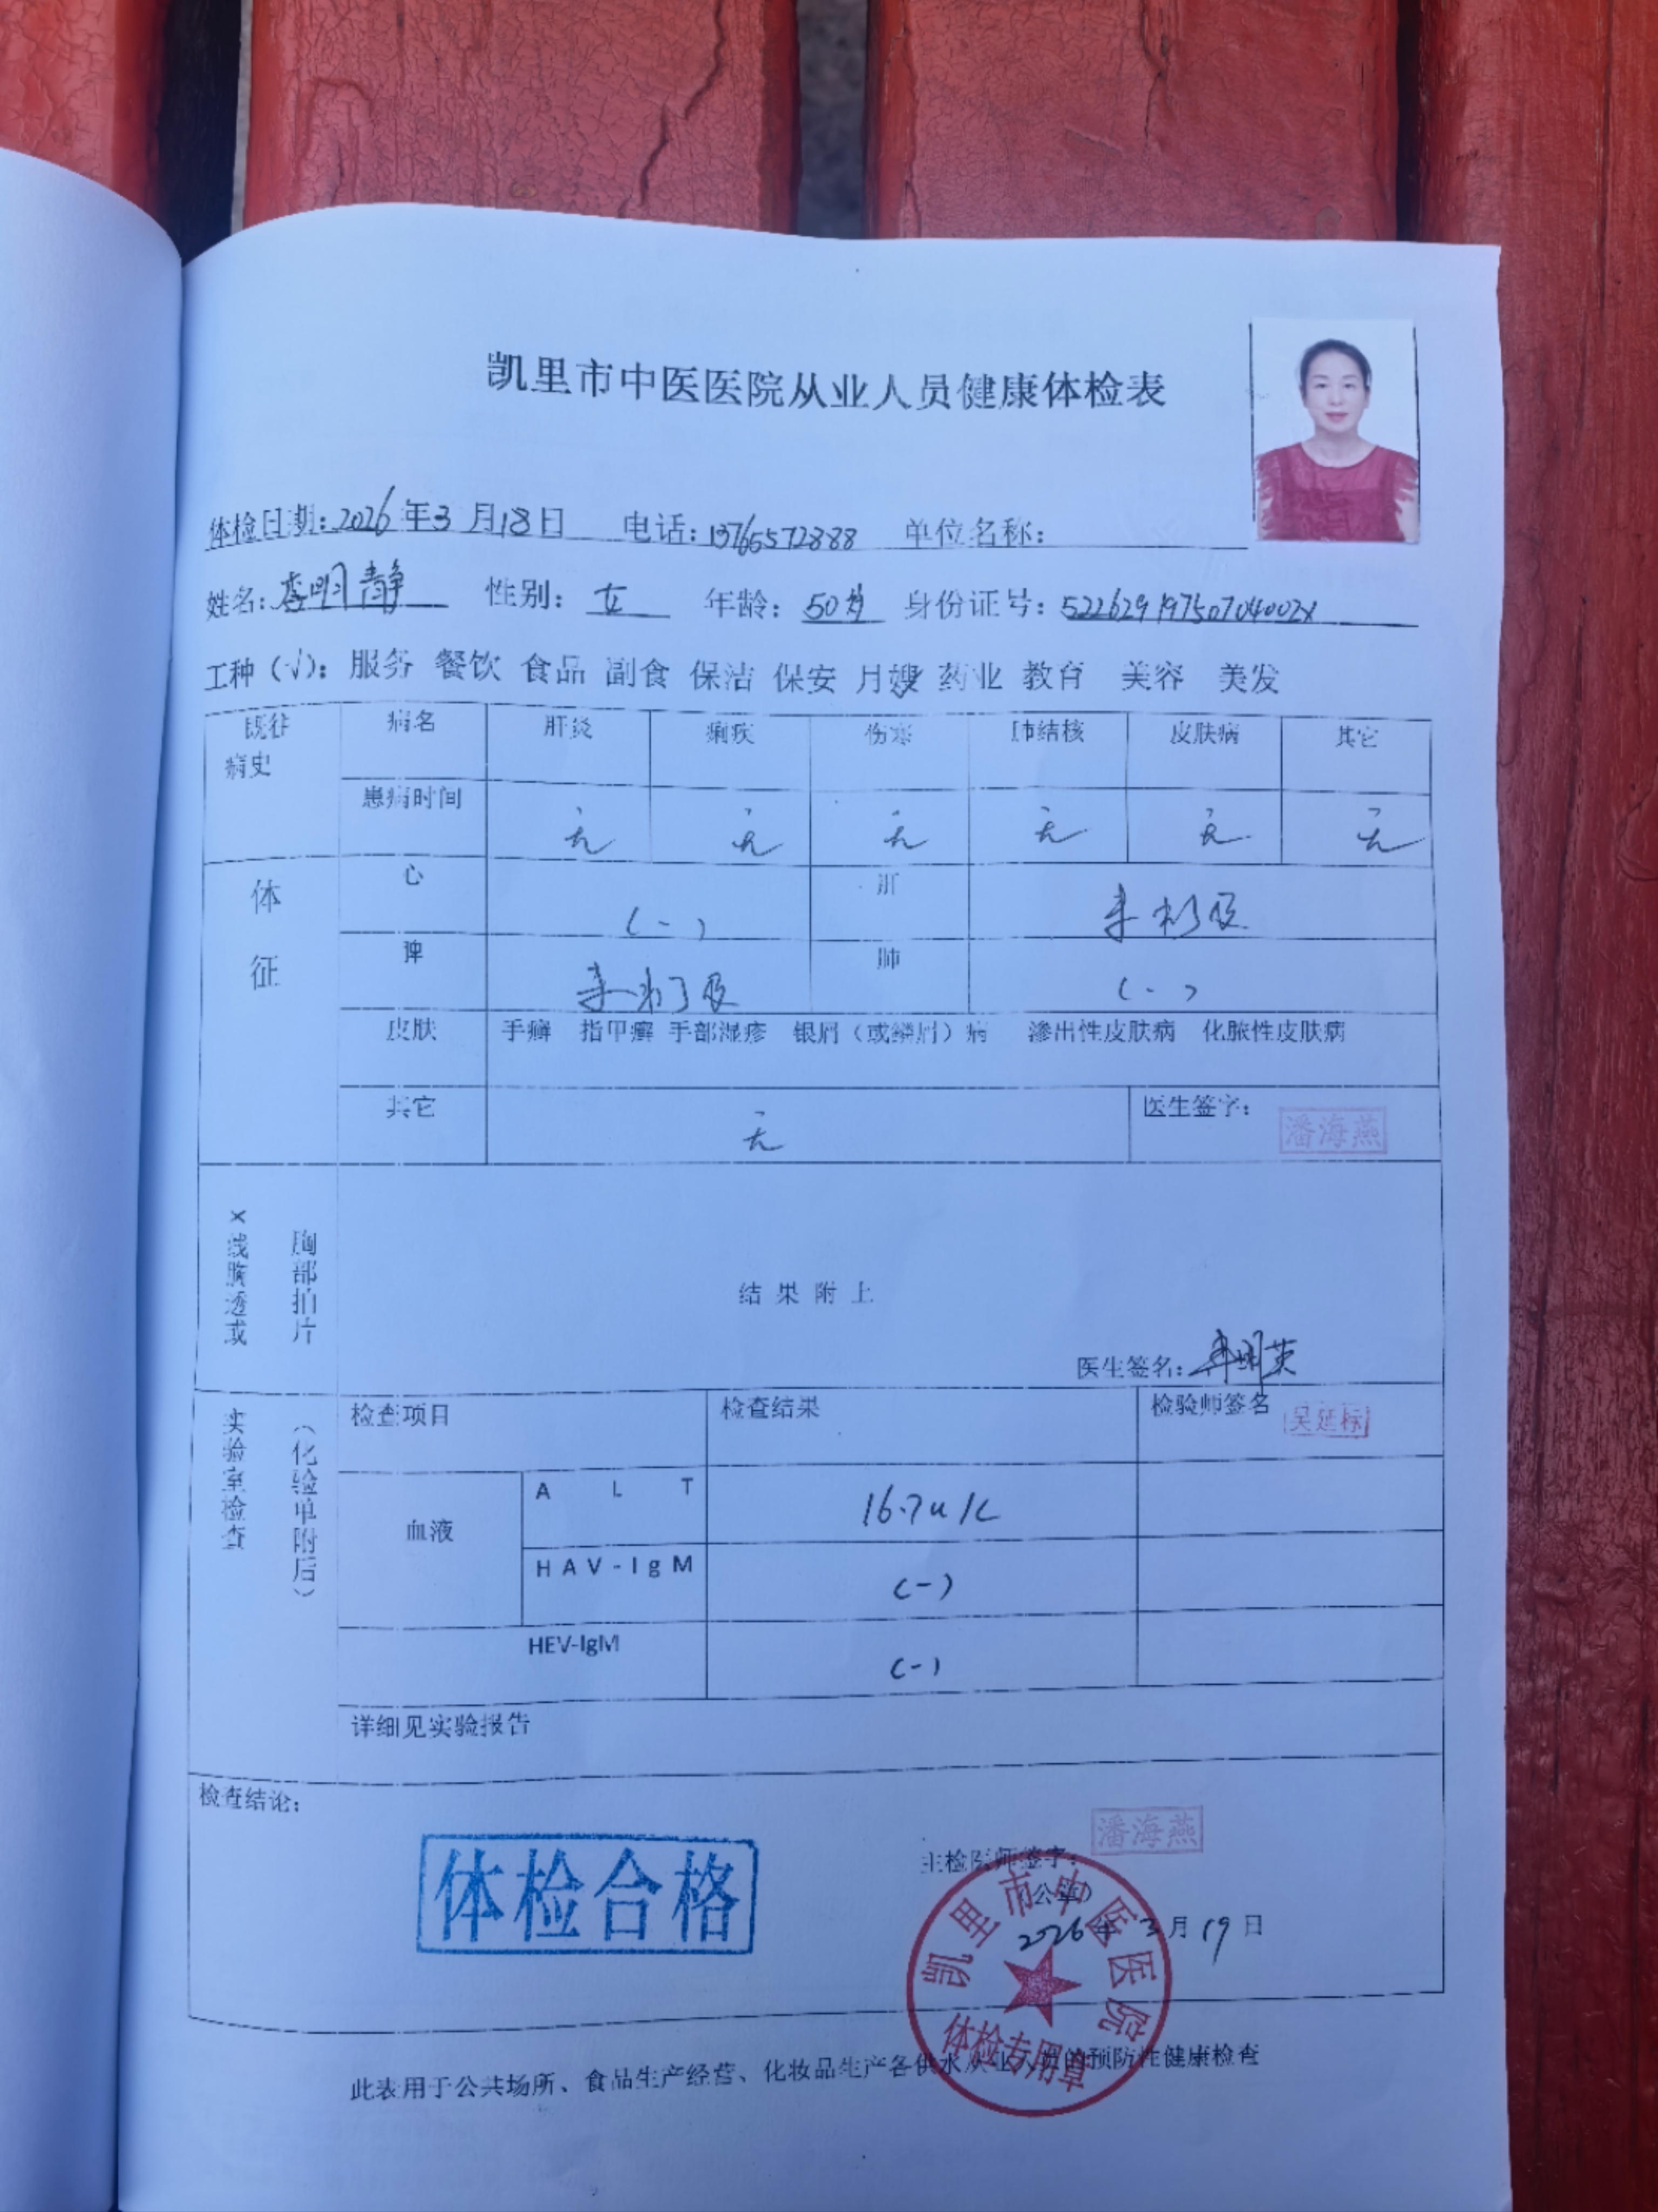 凯里市中医医院从业人员健康体检表
体检日期:2026年3月18日 电话:13765572888 单位名称:
姓名:李明静 性别:女 年龄:50岁 身份证号:52262919750704002X
工种（√）: 服务 餐饮 食品 副食 保洁 保安 月嫂 药业 教育 美容 美发
既往病史 病名 肝炎 痢疾 伤寒 肺结核 皮肤病 其它
患病时间 无 无 无 无 无 无
体征 心 (-) 肝 未扪及
脾 未扪及 肺 (-)
皮肤 手癣 指甲癣 手部湿疹 银屑（或鳞屑）病 渗出性皮肤病 化脓性皮肤病
其它 无 医生签字: 潘海燕
X线胸透或胸部拍片 结果附上
医生签名:
实验室检查（化验单附后） 检查项目 检查结果 检验师签名 吴延标
血液 ALT 16.7u/L
HAV-IgM (-)
HEV-IgM (-)
详细见实验报告
检查结论:
体检合格
主检医师签字: 潘海燕
(公章)
2026年3月19日
凯里市中医医院
体检专用章
此表用于公共场所、食品生产经营、化妆品生产各供水从业人员的预防性健康检查